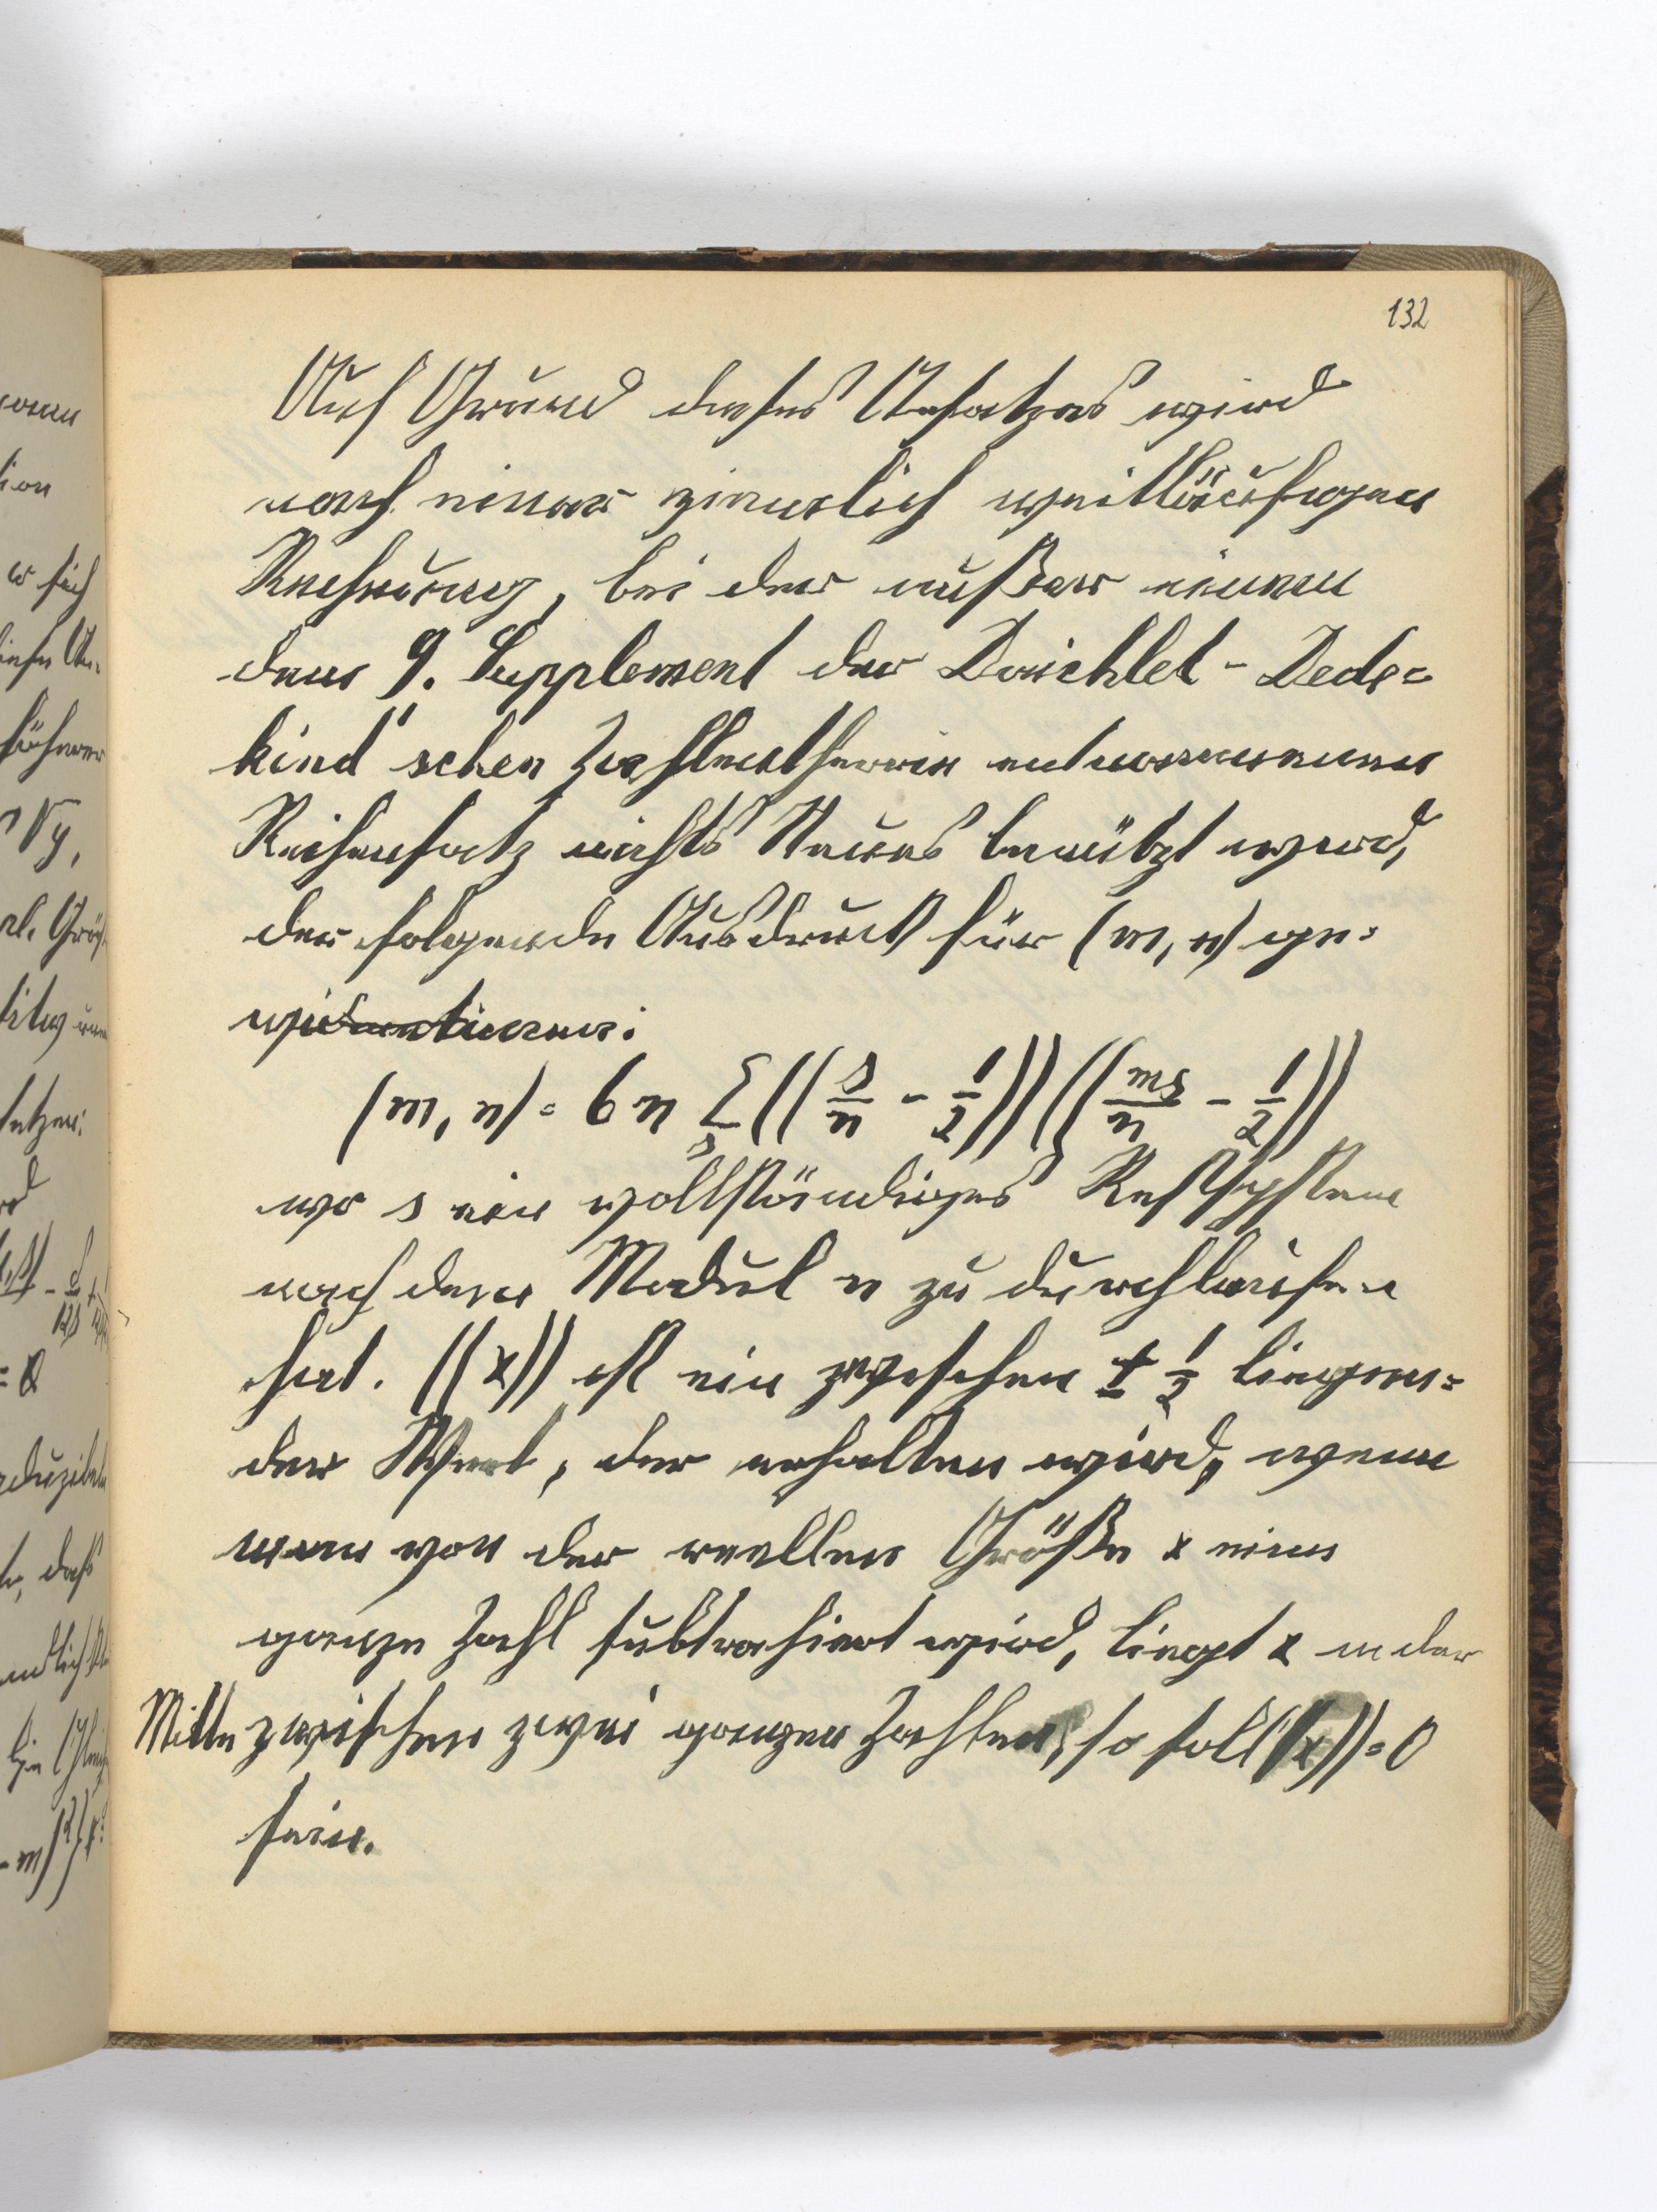 132
Auf Grund dieses Ansatzes wird
nach einer ziemlich weitläufigen
Rechnung, bei der außer einem
dem 9. Supplement der Dirichlet-Dede=
kind'schen Zahlentheorie entnommenen
Reihensatz nichts Neues benützt wird,
der folgende Ausdruck für (m, n) ge=
(m, n) = 6n Σ_s ((s/n - 1/2)) ((ms/n - 1/2))
wo s ein vollständiges Restsystem
nach dem Modul n zu durchlaufen
hat. ((x)) ist ein zwischen ± 1/2 liegen=
der Wert, der erhalten wird, wenn
man von der reellen Größe x eine
ganze Zahl subtrahiert wird, liegt x in der
Mitte zwischen zwei ganzen Zahlen, so soll ((x)) = 0
sein.